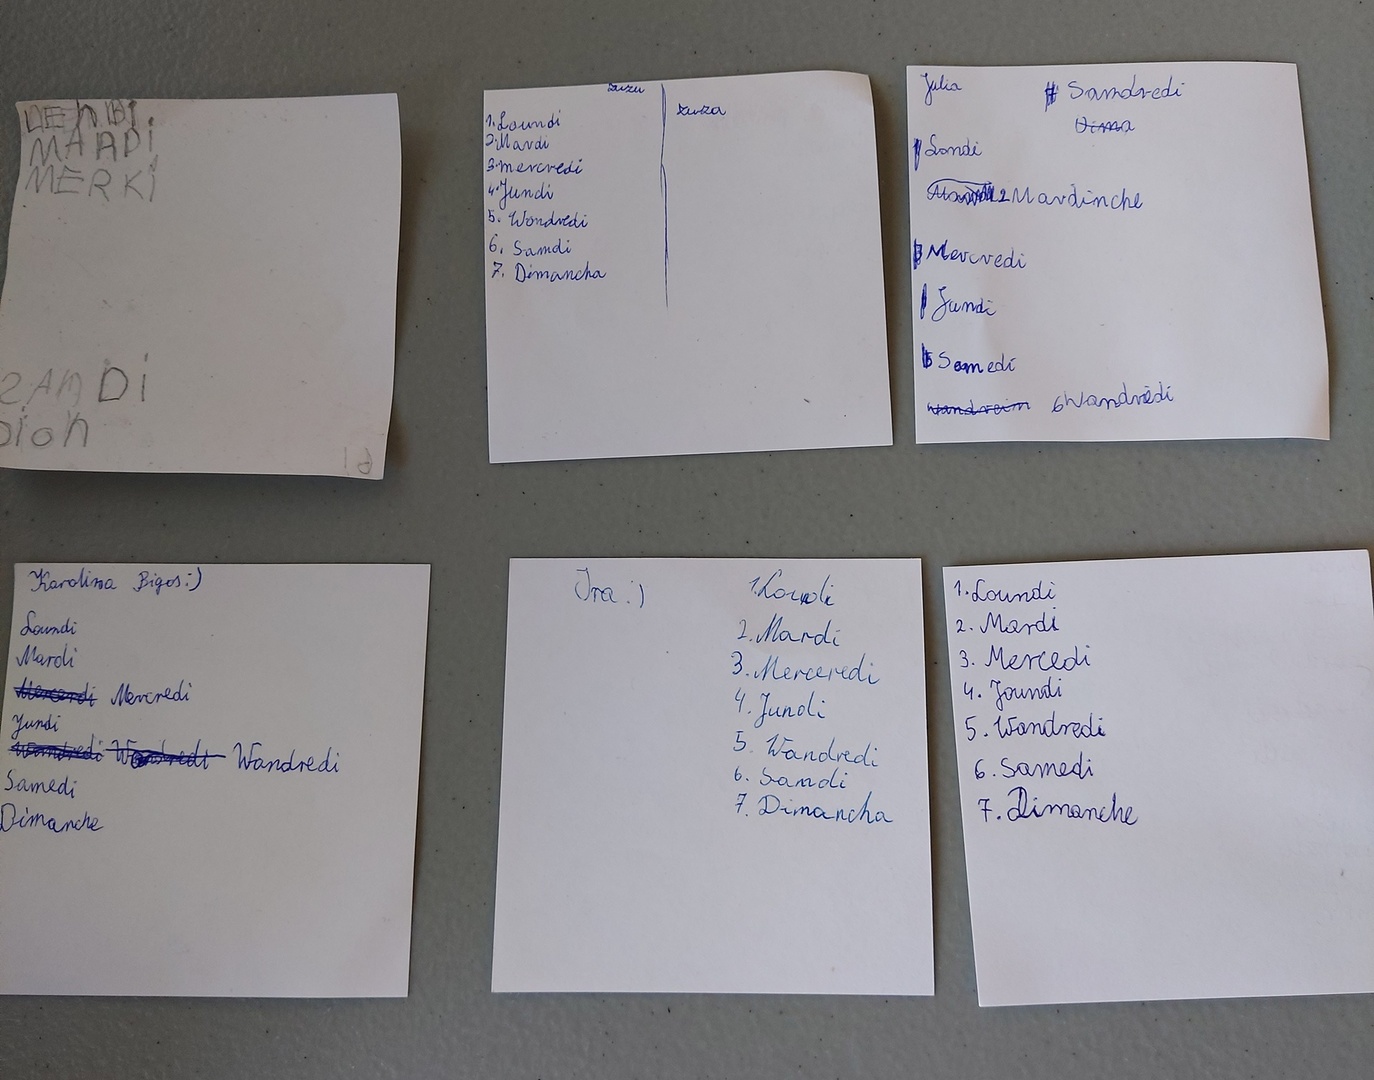 MARDI
MERKI
SAMDI
Zuza
1. Loundi
2. Mardi
3. mercredi
4. Jundi
5. Wandredi
6. Samdi
7. Dimancha
Julia
Samdredi
Dima
Londi
2 Mardinche
Mercredi
Jundi
5 Samedi
6 Wandredi
Karolina Bigos :)
Loundi
Mardi
Mercredi
Jundi
Wandredi
Samedi
Dimanche
Ira :)
1. Loundi
2. Mardi
3. Merceredi
4. Jundi
5. Wandredi
6. Samdi
7. Dimancha
1. Loundi
2. Mardi
3. Mercedi
4. Joundi
5. Wandredi
6. Samedi
7. Dimanche